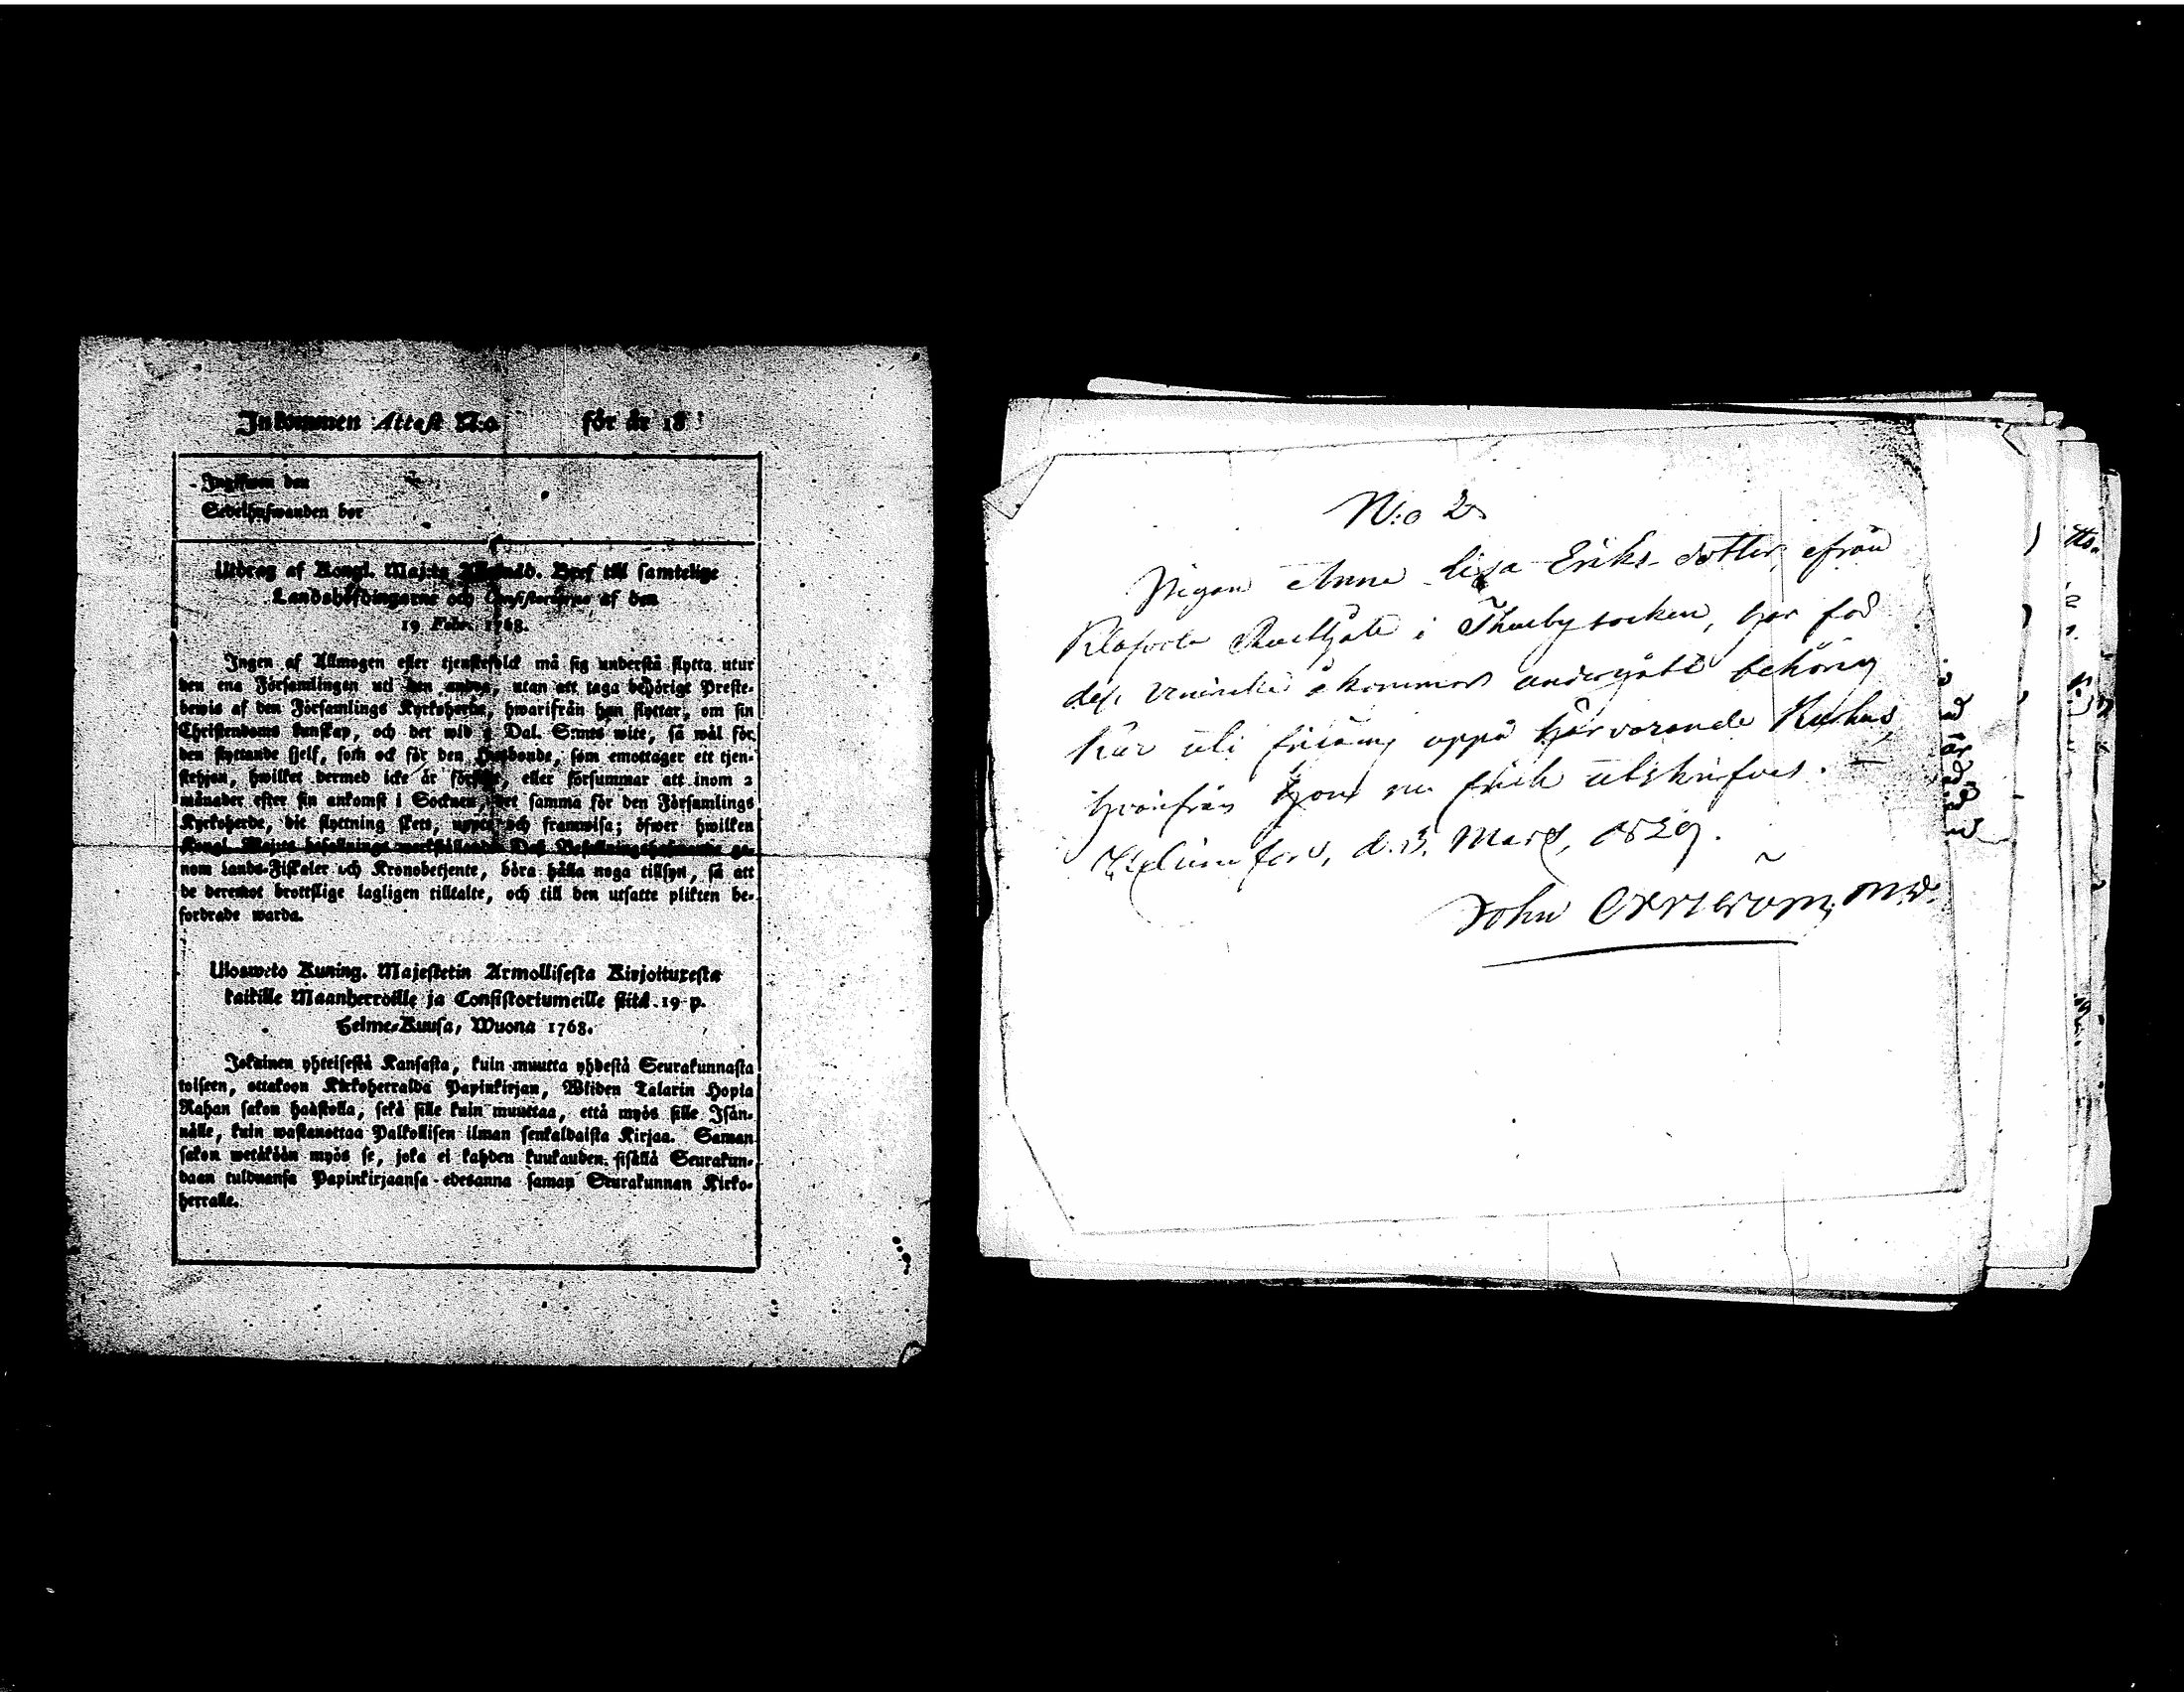 Inkommen Attest N:o för år 18
Ingifwen den
Sedelhafwanden bor
Utdrag af Kongl. Maj:ts Allernåd. Bref till samtelige
Landshöfdingarne och Consistorierne af den
19 Febr. 1768.
Ingen af Allmogen eller tjenstefolck må sig understå flytta utur
den ena Församlingen uti den andra, utan att taga behörige Preste-
bewis af den Församlings Kyrkoherde, hwarifrån han flyttar, om sin
Christendoms kunskap, och det wid 2 Dal. S:mts wite, så wäl för
den flyttande sjelf, som ock för den Husbonde, som emottager ett tjen-
stehjon, hwilket dermed icke är försedt, eller försummar att inom 2
månader efter sin ankomst i Socknen, det samma för den Församlings
Kyrkoherde, dit flyttning skett, uppte och framwisa; öfwer hwilken
Kongl. Maj:ts befallnings werkställande Des Befallningshafwande ge-
nom Lands-Fiskaler och Kronobetjente, böra hålla noga tillsyn, så att
de deremot brottslige lagligen tilltalte, och till den utsatte plikten be-
fordrade warda.
Ulosweto Kuning. Majestetin Armollisesta Kirjoituxesta
kaikille Maanherroille ja Consistoriumeille siitä 19 p.
Helme-Kuusa, Wuona 1768.
Jokainen yhteisestä Kansasta, kuin muutta yhdestä Seurakunnasta
toiseen, ottakoon Kirkoherralda Papinkirjan, Wiiden Talarin Hopia
Rahan sakon haastolla, sekä sille kuin muuttaa, että myös sille Isän-
nälle, kuin wastanottaa Palkollisen ilman senkaldaista Kirjaa. Saman
sakon wetäköön myös se, joka ei kahden kuukauden sisällä Seurakun-
daan tulduansa Papinkirjaansa edesanna saman Seurakunnan Kirko-
herralle.
N:o 2
Pigan Anna Lisa Eriks dotter, ifrån
i Thusby socken, har för
dess åkommor undergått behörig
Kur uti uppå härvarande Kurhus,
hvarifrån hon nu frisk utskrifves.
d. 13. Mars, 1829.
John